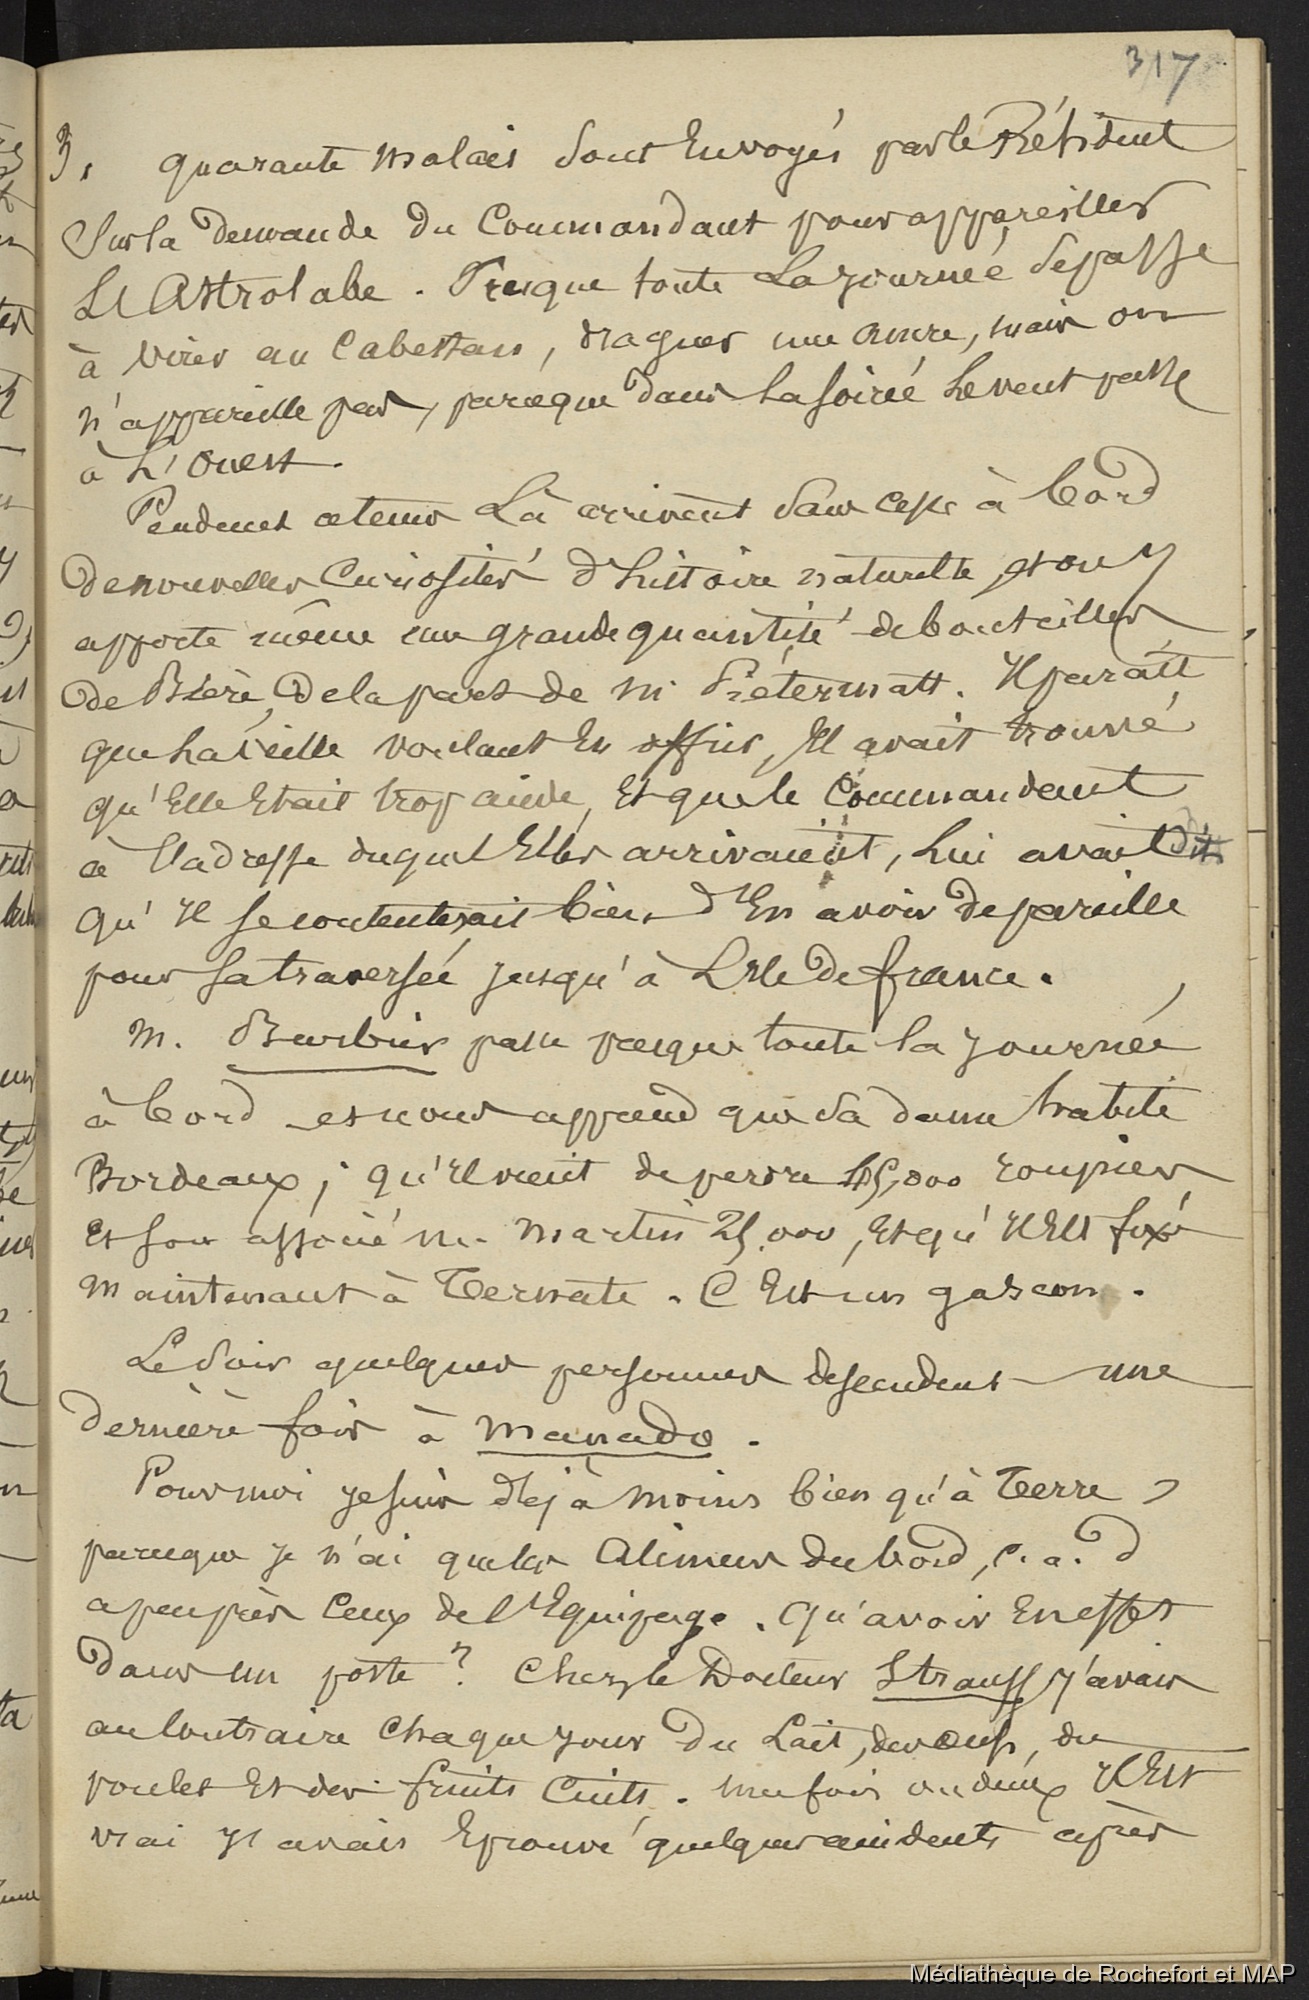 317
3. quarante malais sont Envoyés par le Résident
Sur la demande du Commandant pour appareiller
L'Astrolabe. Presque toute La journée se passe
à virer au Cabestan, draguer une ancre, mais on
n'appareille pas, parceque dans La soirée Le vent passe
à L'Ouest.
Pendant ce tems Là arrivent sans cesse à bord
de nouvelles Curiosités d'histoire naturelle, et on y
apporte même une grande quantité de bouteilles
de Bière, de la part de M. Piétermatt. Il paraît
que La veille voulant En offrir, Il avait trouvé
qu'Elle Etait trop , Et que le Commandant
à L'adresse duquel Elles arrivaient, Lui avait Dit
qu'Il se contenterait bien d'En avoir de pareille
pour sa traversée jusqu'à L'Ile de france.
M. Barbier passe presque toute la journée
à bord et nous apprend que sa dame habite
Bordeaux ; qu'Il vient de perdre 45,000 roupies
Et son associé M. Martin 25.000, Et qu'Il Est fixé
maintenant à Ternate. C'Est un gascon.
Le Soir quelques personnes descendent une
dernière fois à Manado.
Pour moi je suis déjà moins bien qu'à Terre,
parceque je n'ai que les Alimens du bord, c. a. d
a peu près Ceux de l'Equipage. Qu'avoir En effet
dans un poste ? Chez le Docteur Strauss j'avais
au Contraire Chaque jour du Lait, des oeufs, du
poulet Et des fruits Cuits. une fois ou deux Il Est
vrai j'avais Eprouvé quelques accidents après
Médiathèque de Rochefort et MAP